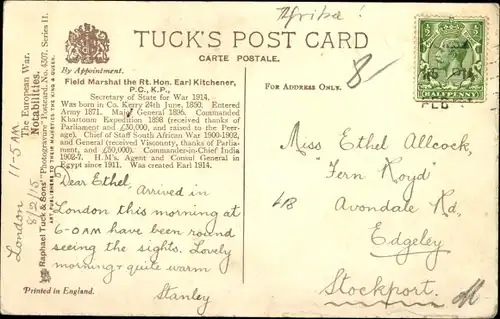 Afrika!
TUCK'S POST CARD
CARTE POSTALE.
8-
HALFPENNY
By Appointment.
Field Marshal the Rt. Hon. Earl Kitchener,
P.C., K.P.,
Secretary of State for War 1914.
Was born in Co. Kerry 24th June, 1850. Entered
Army 1871. Major General 1896. Commanded
Khartoum Expedition 1898 (received thanks of
Parliament and £30,000, and raised to the Peer-
age). Chief of Staff South African War 1900-1902,
and General (received Viscounty, thanks of Parlia-
ment, and £50,000). Commander-in-Chief India
1902-7. H.M's. Agent and Consul General in
Egypt since 1911. Was created Earl 1914.
The European War.
Notabilities.
Raphael Tuck & Sons' "Photogravure" Postcard No. 4307, Series II.
ART PUBLISHERS TO THEIR MAJESTIES THE KING & QUEEN.
London 11-5 AM
8/2/15
Dear Ethel, Arrived in
London this morning at
6-0 AM have been round
seeing the sights. Lovely
morning & quite warm
Stanley
Printed in England.
FOR ADDRESS ONLY.
Miss Ethel Allcock,
"Fern Royd"
Avondale Rd,
Edgeley
Stockport.